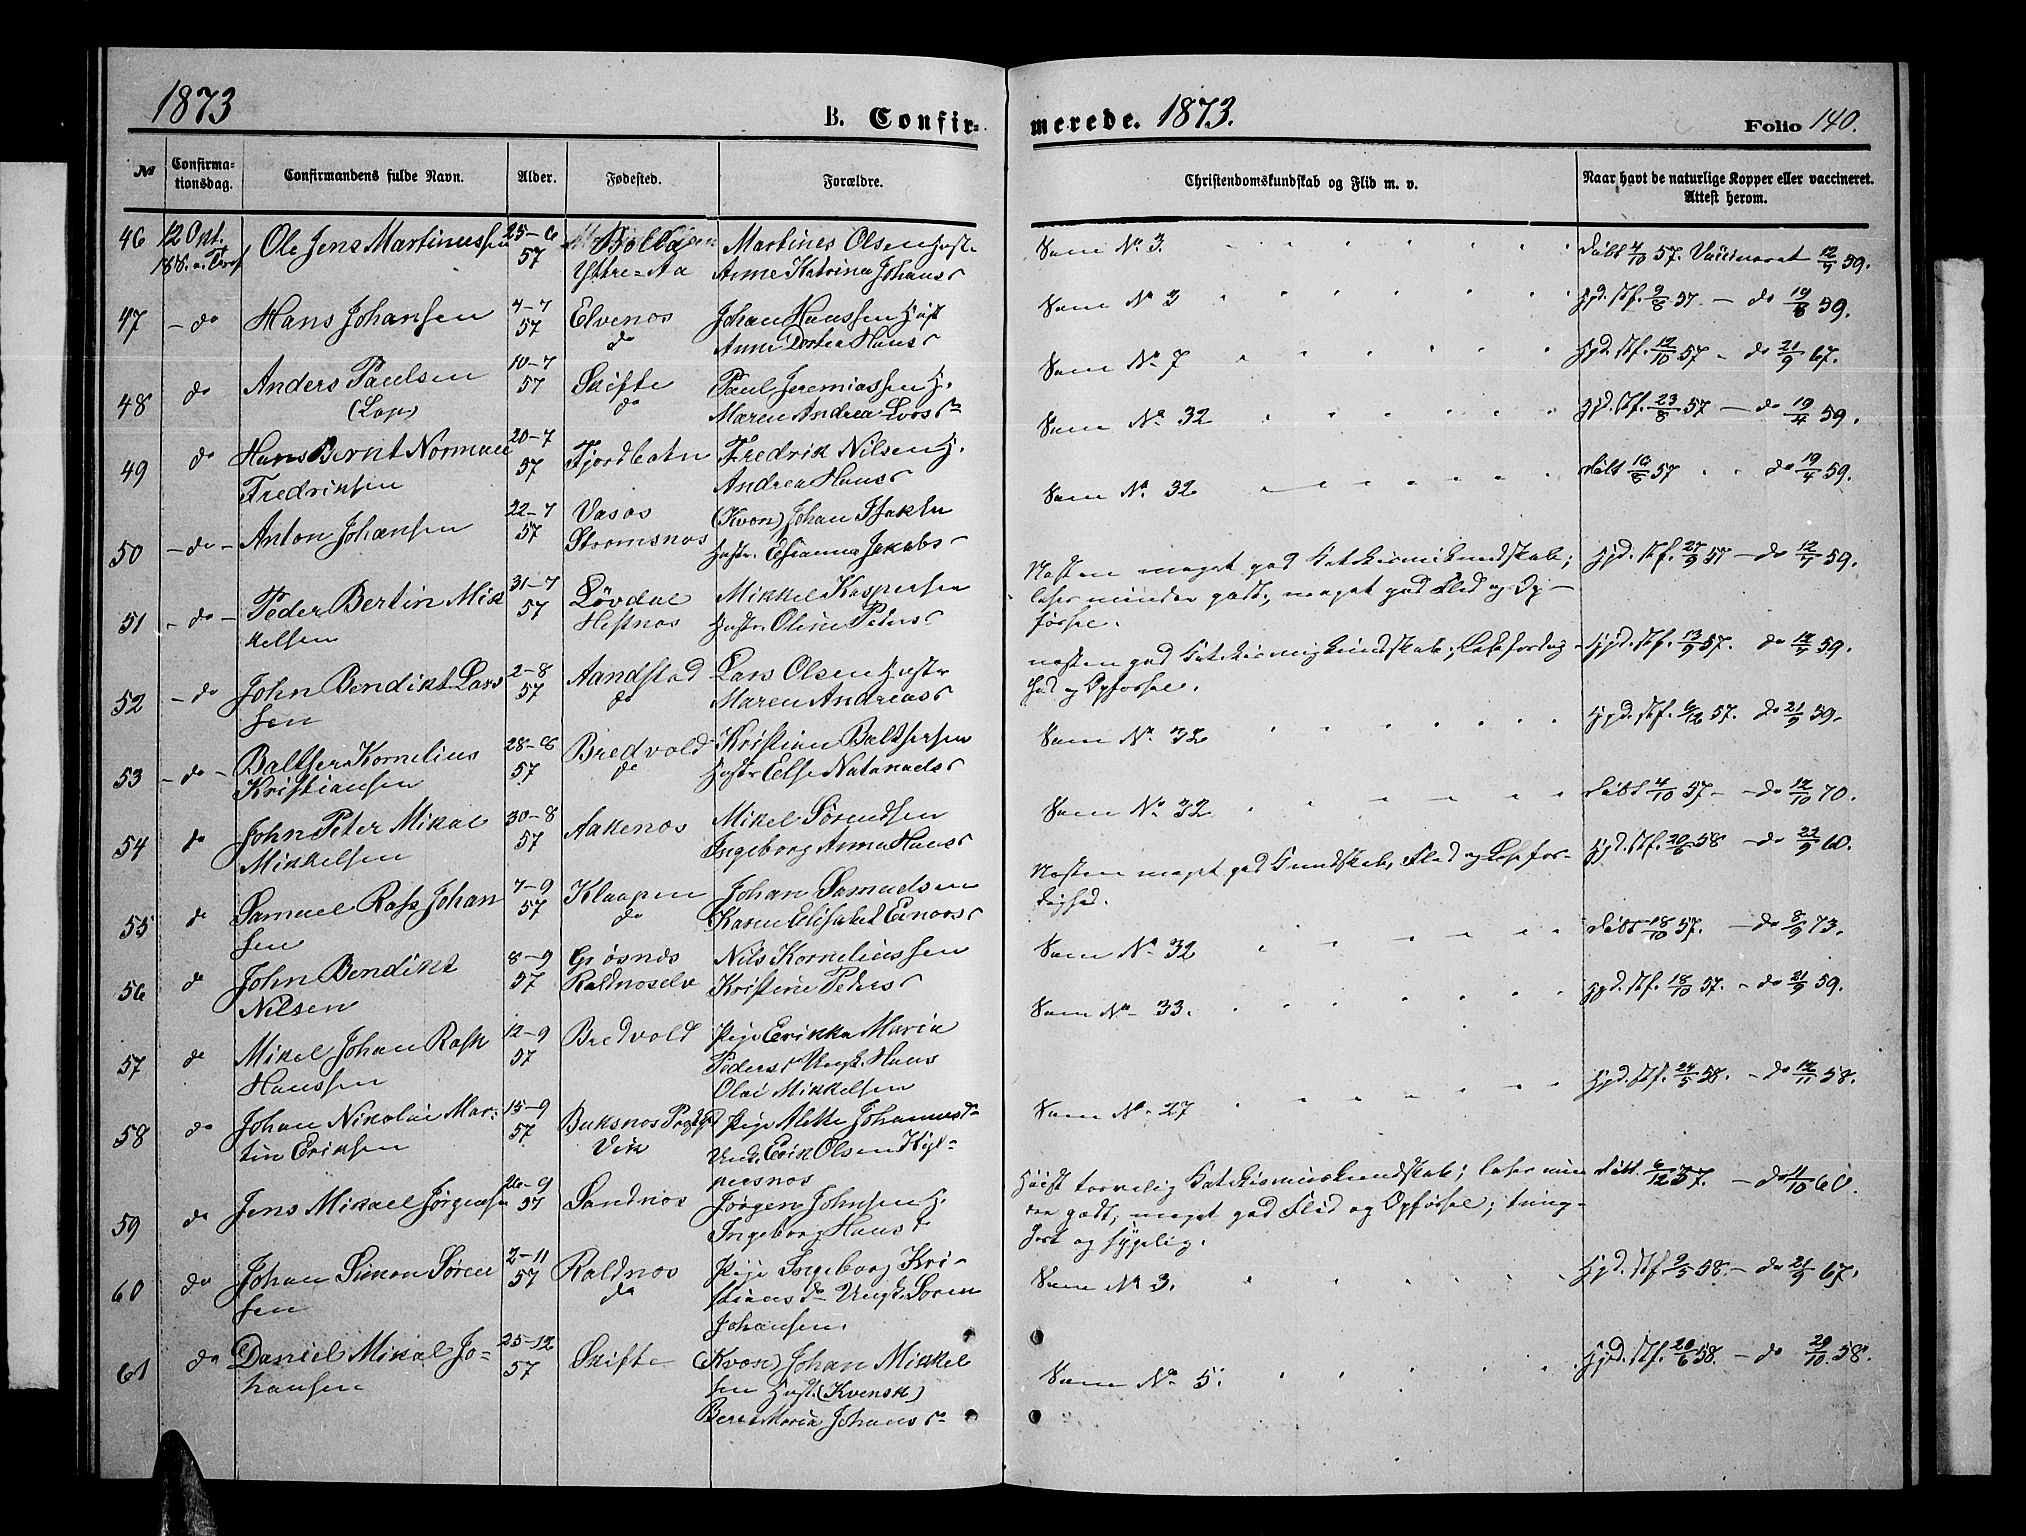 1873
B. Confir-
merede. 1873.
Folio 140.
No
Confirma-
tionsdag.
Confirmandens fulde Navn.
Alder.
Fødested.
Forældre.
Christendomskundskab og Flid m. v.
Naar havt de naturlige Kopper eller vaccineret.
Attest herom.
46 12 Okt. Ole Jens Martinussen 25-6 57
Yttre-Aa
Martines Olsen Hustr.
Anne Katrina Johansr
Sam No 3. " " " " " "
Døbt 4/10 57. Vaccineret 12/7 59.
47 - do Hans Johansen 4-7 57 Elvenos
do
Johan Hanssen Hust
Anne Dortea Hansr
Sam No 3 " " " " " "
Hjd. Stf. 9/8 57 - do 19/8 59.
48 do Anders Paulsen 10-7 57 Skifte
(Lap)
do
Paul Jeremiassen H.
Maren Andrea Larsr
Sam No 7 " " " " " "
Hjd. Stf. 12/10 57 - do 21/9 67.
49 do Hans Bernt Normann 20-7 57 Fjordbotn
Fredriksen
Fredrik Nilsen H.
Andrea Hansr
Sam No 32 " " " " " "
Hjd. Stf. 23/8 57 - do 19/4 59.
50 - do - Anton Johansen 22-7 57 Vasos
Stromsnos
(Kvæn) Johan Isaksen
Hustr. Jakobsr
Sam No 32 " " " " " "
Døbt 16/8 57 " " do 19/4 59.
51 - do - Peder Bertin Mik
kelsen
31-7 57 Løvdal
Hestnos
Mikkel Kaspersen
Hustr. Oline Pedersr
Næsten meget god Katekismikundskab;
læser mindre godt; meget god Flid og Op-
førsel.
Hjd. Stf. 27/9 57 - do 12/7 59.
52 - do John Bendikt Lars
sen
2-8 57 Aandstad
do
Lars Olsen Hustr
Maren Andreasr
næsten god Katekismiskundskab, Læsefærdig-
hed og Opførsel.
Hjd. Stf. 13/9 57. do 12/7 59.
53 - do - Baltser Kornelius
Kristiansen
28-8 57 Bredvold
do
Kristian Baltsersen
Hustr Else Natanaelsr
Sam No 32 " " " " " "
Hjd. Stf. 6/12 57. do 21/9 59.
54 do John Peter Mikal
Mikkelsen
30-8 57 Aakenos
Mikel Sørendsen
Ingeborg Anna Hansr
Sam No 32 " " " " " "
Døbt 4/10 57 - - do 12/10 70.
55 do Samuel Rask Johan
sen
7-9 57 Klaapen
do
Johan Samuelsen
Karen Elisabet Einarsr
Næsten meget god Kundskab, Flid og Læsefær-
dighed.
Hjd. Stf. 20/6 58 - do 22/9 60.
56 do John Bendikt
Nilsen
8-9 57 Grøsnes
Roldnoselv
Nils Korneliussen
Kristine Pedersr
Sam No 32 " " " " " "
Døbt 18/10 57. - do 8/9 73.
57 do Mikel Johan Rask
Hanssen
12-9 57 Bredvold
Pige Erikka Maria
Pedersr Ungk. Hans
Olai Mikkelsen
Sam No 33. " " " " " "
Hjd. Stf. 18/10 57. - do 21/9 59.
58 do Johan Nikolai Mar-
tin Eriksen
15-9 57
Vik
Pige Mette Johannesd
Ungk. Erik Olsen Kip-
pernos
Sam No 27 " " " " " "
Hjd. Stf. 24/5 58. - do 12/11 58.
59 do Jens Mikael Jørgensen 26-9 57 Sandnos
Jørgen Johnsen H.
Ingeborg Hansr
Høist tarvelig Katekismuskundskab; læser min
dre godt; meget god Flid og Opførsel; tung-
hørt og sygelig.
Døbt 6/12 57. - do 4/10 60.
60 do Johan Simon Søren
sen
2-11 57 Roldnos
do
Pige Ingeborg Kri-
stiansdr Ungk. Søren
Johansen.
Sam No 3. " " " " " "
Hjd. Stf. 9/5 58. - do 21/9 67.
61 do Daniel Mikal Jo-
hansen
25-12 57 Skifte
(Kvæn) Johan Mikkel
sen Hust. (Kvensk)
Beret Maria Johansr
Sam No 5. " " " " "
Hjd. Stf. 20/6 58. - do 29/10 58.